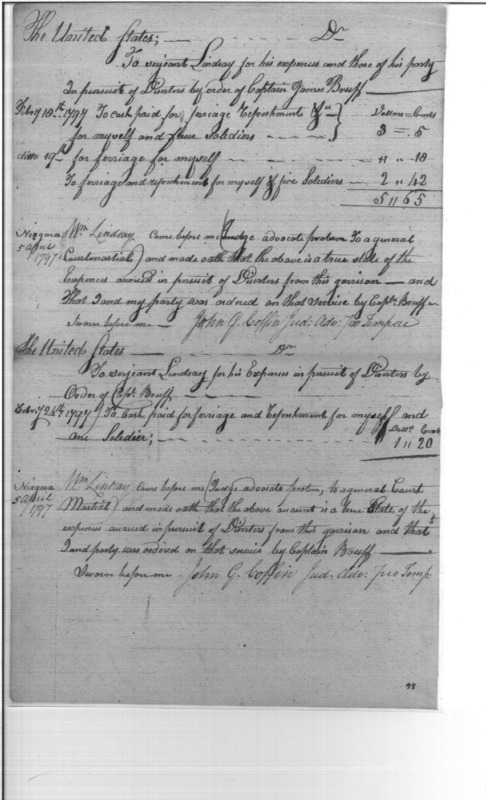 The United States; — Dr
To serjeant Lindsay for his expences and those of his party
In pursuit of Diserters by order of Captain James Bruff —
Feb'y 18th 1797 To cash paid for ferriage & refreshment Dollars — Cents
for myself and Soldiers - - - - 3 = . 5
ditto 19th for ferriage for myself — " .. 18
To ferriage and refreshment for myself & five Soldiers — 2 " 42
5 " 65
Niagara Wm Lindsay Came before me (Judge advocate protem To a general
5 april
1797 Courtmartial) and made oath that the above is a true state of the
Expences in pursuit of Diserters from this garrison — and
that I and my party was ordered on that service by Capt. Bruff —
Sworn before me — John G. Coffin Jud. Adv: Pro Tempore
The United States — Dr
To serjeant Lindsay for his Expences in pursuit of Diserters by
Order of Capt. Bruff —
Feb'y 25th 1797 To Cash paid for ferriage and refreshment for myself and
one Soldier; — Dolls. Cents
1 " 20
Niagara Wm Lindsay Came before me (Judge advocate protem, to a general Court
5 april
1797 Martial) and made oath that the above account is a true State of the
expences in pursuit of Diserters from this garrison and that
I and party was ordered on that service by Captain Bruff —
Sworn before me - John G. Coffin Jud. Adv: pro Temp.